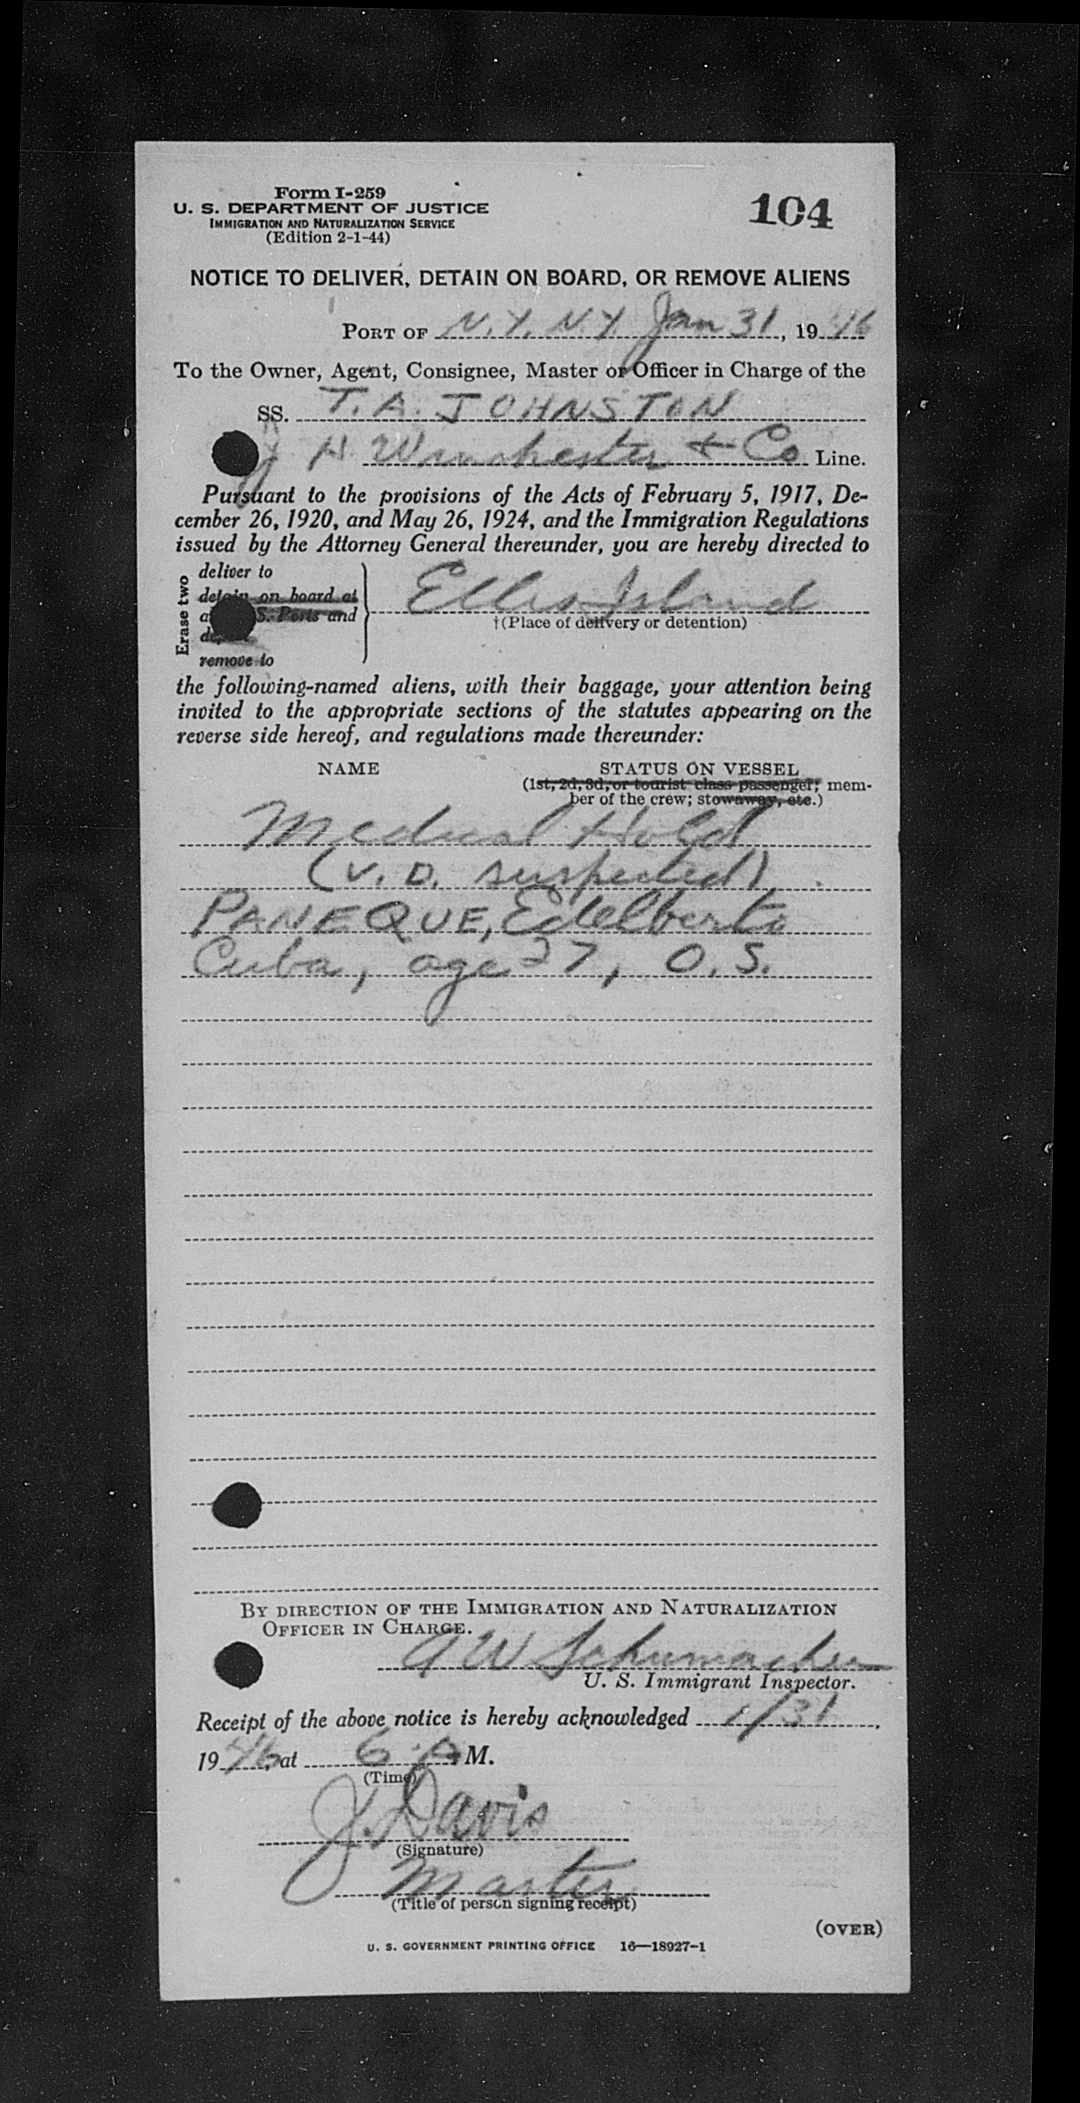 Form I-259
U. S. DEPARTMENT OF JUSTICE
IMMIGRATION AND NATURALIZATION SERVICE
(Edition 2-1-44)
104
NOTICE TO DELIVER, DETAIN ON BOARD, OR REMOVE ALIENS
PORT OF N.Y. N.Y. Jan 31, 1946
To the Owner, Agent, Consignee, Master or Officer in Charge of the
SS. T. A. JOHNSTON
J H Winchester + Co Line.
Pursuant to the provisions of the Acts of February 5, 1917, De-
cember 26, 1920, and May 26, 1924, and the Immigration Regulations
issued by the Attorney General thereunder, you are hereby directed to
Erase two
deliver to
detain on board at
S. Ports and
remove to
Ellis Island
†(Place of delivery or detention)
the following-named aliens, with their baggage, your attention being
invited to the appropriate sections of the statutes appearing on the
reverse side hereof, and regulations made thereunder:
NAME STATUS ON VESSEL
(1st, 2d, 3d, or tourist class passenger; mem-
ber of the crew; stowaway, etc.)
Medical Hold
(V. D. suspected)
PANEQUE, Edelberto
Cuba, age 27, O.S.
BY DIRECTION OF THE IMMIGRATION AND NATURALIZATION
OFFICER IN CHARGE.
A W Schumacher
U. S. Immigrant Inspector.
Receipt of the above notice is hereby acknowledged 1/31,
1946, at 6 A M.
(Time)
J. Davis
(Signature)
Master
(Title of person signing receipt)
(OVER)
U. S. GOVERNMENT PRINTING OFFICE 16—18927-1